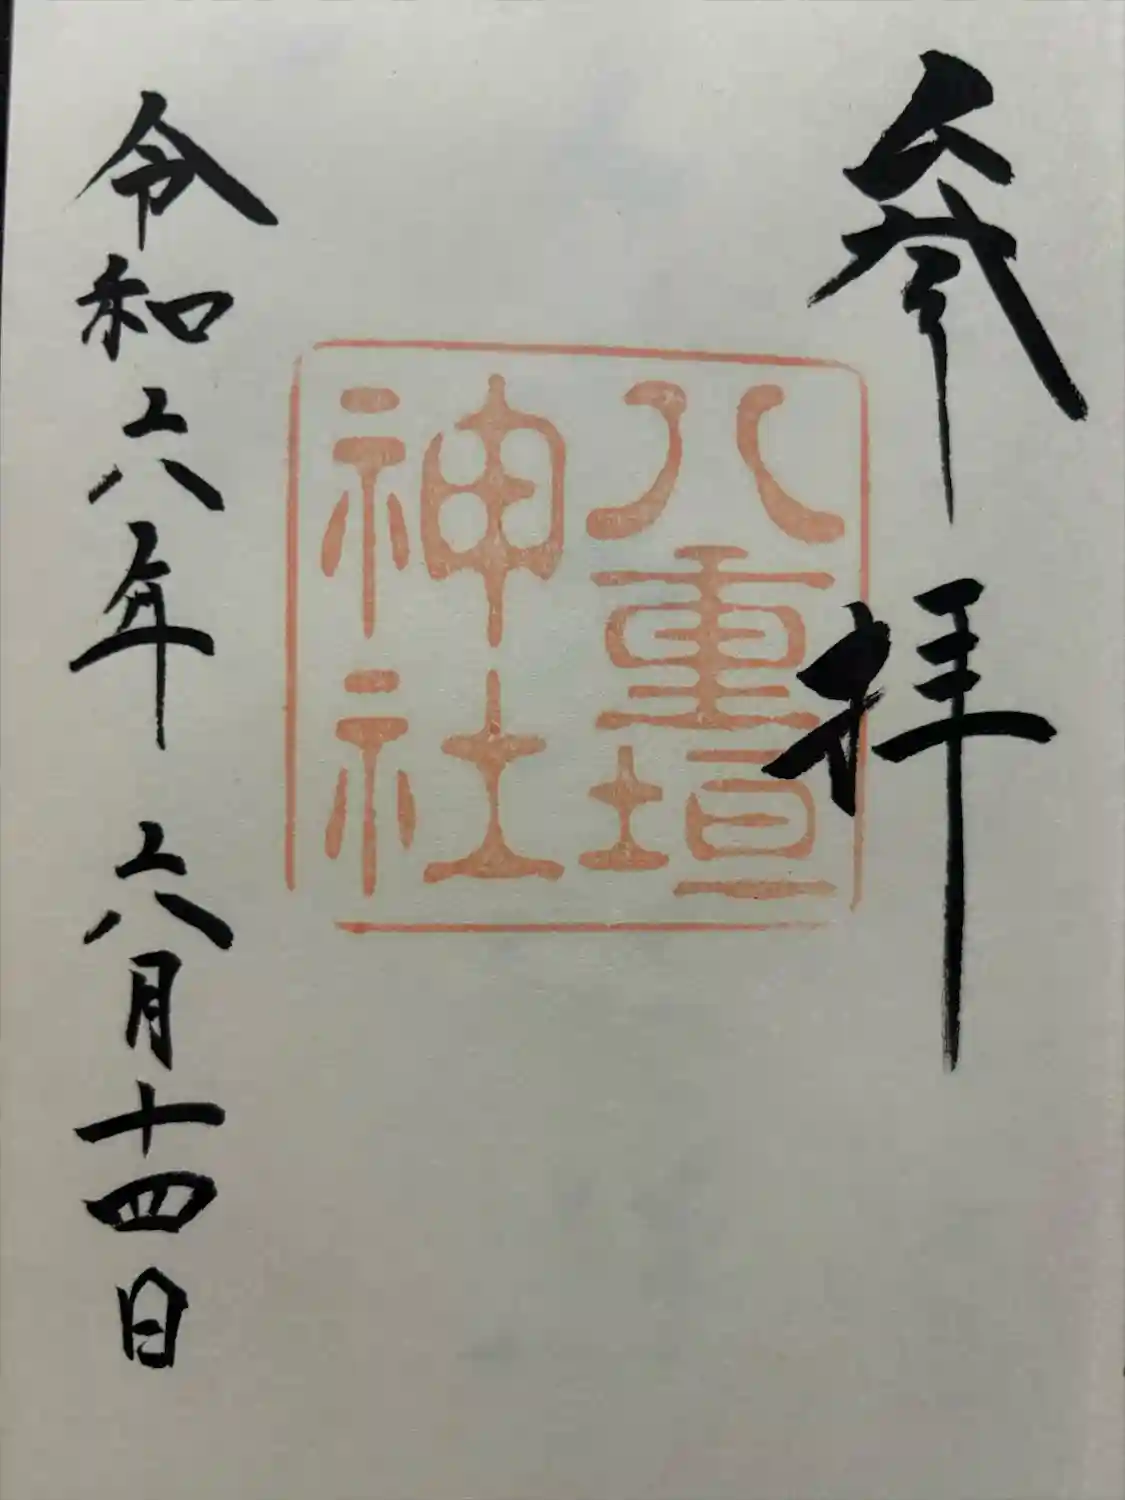 参拝
八重垣
神社
令和六年 六月十四日